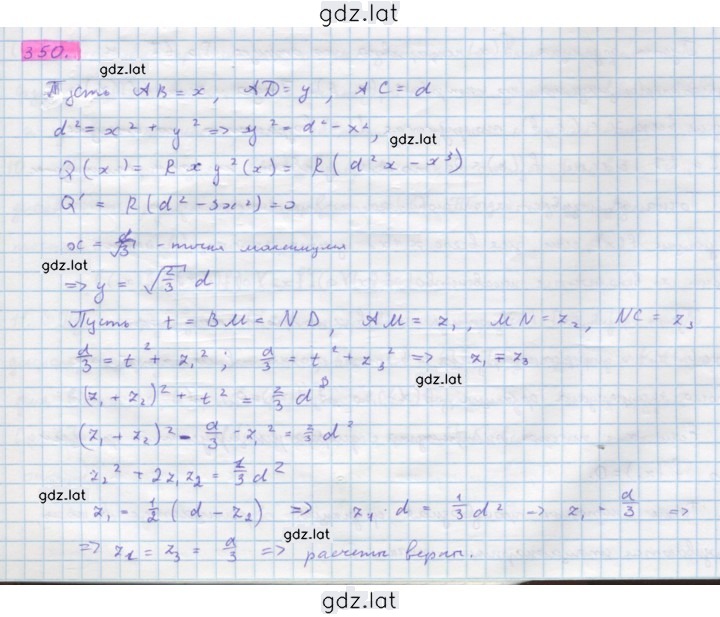 gdz.lat
350.
gdz.lat
Пусть AB = x, AD = y, AC = d
d² = x² + y² => y² = d² - x²,
gdz.lat
Q(x) = R x y²(x) = R(d²x - x³)
Q' = R(d² - 3x²) = 0
x = d/√3 - точка максимума
gdz.lat
=> y = √2/3 d
Пусть t = BM = ND, AM = z₁, MN = z₂, NC = z₃
d/3 = t² + z₁²; d/3 = t² + z₃² => z₁ = z₃
gdz.lat
(z₁ + z₂)² + t² = 2/3 d²
(z₁ + z₂)² - d/3 - z₁² = 2/3 d²
z₂² + 2z₁z₂ = 1/3 d²
gdz.lat
z₁ = 1/2 (d - z₂) => z₁ · d = 1/3 d² -> z₁ = d/3 =>
gdz.lat
=> z₁ = z₃ = d/3 => расчеты верны.
gdz.lat